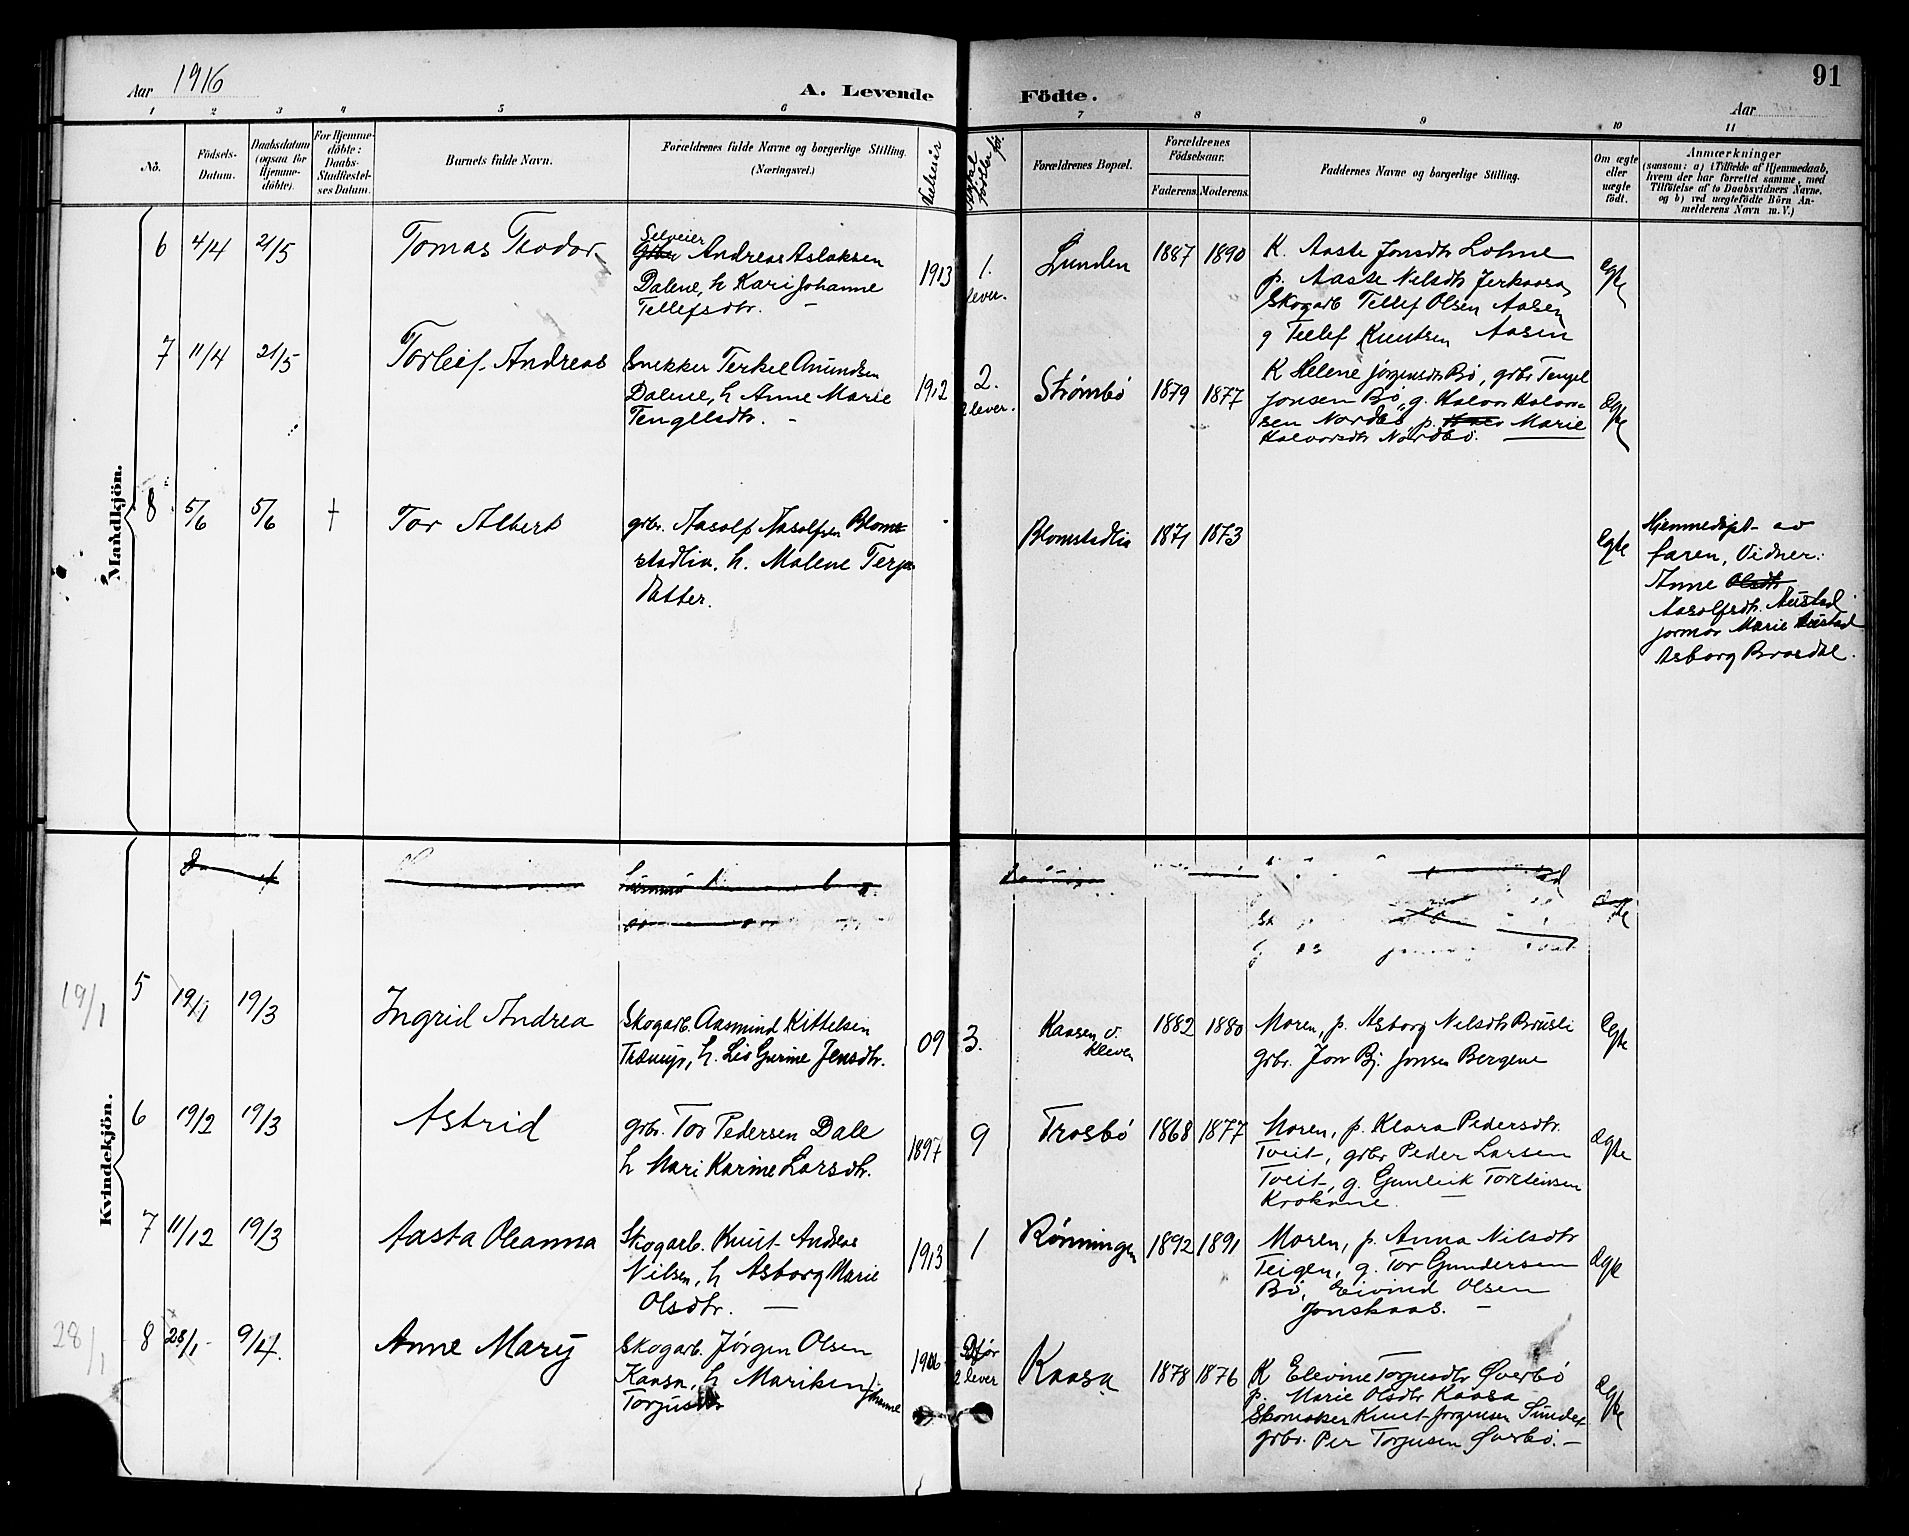 Aar 1916
A. Levende
Födte.
91
Aar
1 2 3 4 5 6 7 8 9 10 11
No.
Födsels-Datum.
Daabsdatum (ogsaa for Hjemmedöbte).
For Hjemmedöbte: Daabs-Stadfæstelses Datum.
Barnets fulde Navn.
Forældrenes fulde Navne og borgerlige Stilling.
(Næringsvei.)
Vielseår
Forældrenes Bopæl.
Forældrenes Födselsaar.
Faderens.
Moderens.
Faddernes Navne og borgerlige Stilling.
Om ægte eller uægte födt.
Anmærkninger
(saasom: a) i Tilfælde af Hjemmedaab, hvem der har forrettet samme, med Tilföielse af to Daabsvidners Navne, og b) ved uægtefödte Börn Anmelderens Navn m. V.)
Mandkjön.
6 4/4 21/5 Tomas Teodor
Selveier
Andreas Aslaksen
Dalene, h Kari Johanne
Tellefsdtr. -
1913
1.
lever.
Lunden 1887 1890
K. Aaste Jonsdtr Lohne
p. Aaste Nilsdtr Jerkaasa
Skogarb Tellef Olsen Aasen
g Tellef Knutsen Aasen
Egte
7 11/4 21/5 Torleif Andreas
Snekker Terkel Anundsen
Dalene, h Anne Marie
Tengelsdtr. -
1912
2.
2 lever.
Strømbø 1879 1877
K Helene Jørgensdtr Bø, grbr Tengel
Jonsen Bø, g. Halvor Halvor-
sen Nordbø, p. Marie
Halvorsdtr Nordbø.
Egte
8 5/6 5/6 † Tor Albert
grbr. Aasolf Aasolfsen Blom-
stadlia, h. Malene Terje
datter.
Blomstadlia 1871 1873
Egte
Hjemmedøpt av
faren, Vidner:
Anne Olsdtr
Aasolfsdtr. Austad
jormor Marie Austad
Asborg Brasdal.
Kvindekjön.
19/1
5 19/1 19/3 Ingrid Andrea
Skogarb. Aasmund Kittelsen
Trænup, h. Liv Gurine Jensdtr.
09
3.
Kaasen v.
Kleven
1882 1880
Moren, p. Asborg Nilsdtr Brusli
grbr. Jon Bj. Jonsen Bergene
Egte
6 19/2 19/3 Astrid
grbr. Tor Pedersen Dale
h Mari Karine Larsdtr.
1897
9
Trosbø 1868 1877
Moren, p. Klara Pedersdtr.
Tveit, grbr Peder Larsen
Tveit, g. Gunleik Torstensen
Krokane. -
Egte
7 11/12 19/3 Aasta Oleanna
Skogarb. Knut Andreas
Nilsen, h Asborg Marie
Olsdtr. -
1913
1
Rønningen 1892 1891
Moren, p. Anna Nilsdtr
Teigen, g. Tor Gundersen
Bø, Eivind Olsen
Jonskaas. -
Egte
28/1
8 28/1 9/4. Anne Mary
Skogarb. Jørgen Olsen
Kaasa, h Mariken Johanne
Torjusdtr
1906
før
2 lever
Kaasa 1878 1876
K Elevine Torjusdtr Øverbø
p. Marie Olsdtr Kaasa
Skomaker Knut Jørgensen Sundet
grbr. Per Torjusen Øverbø. -
Egte